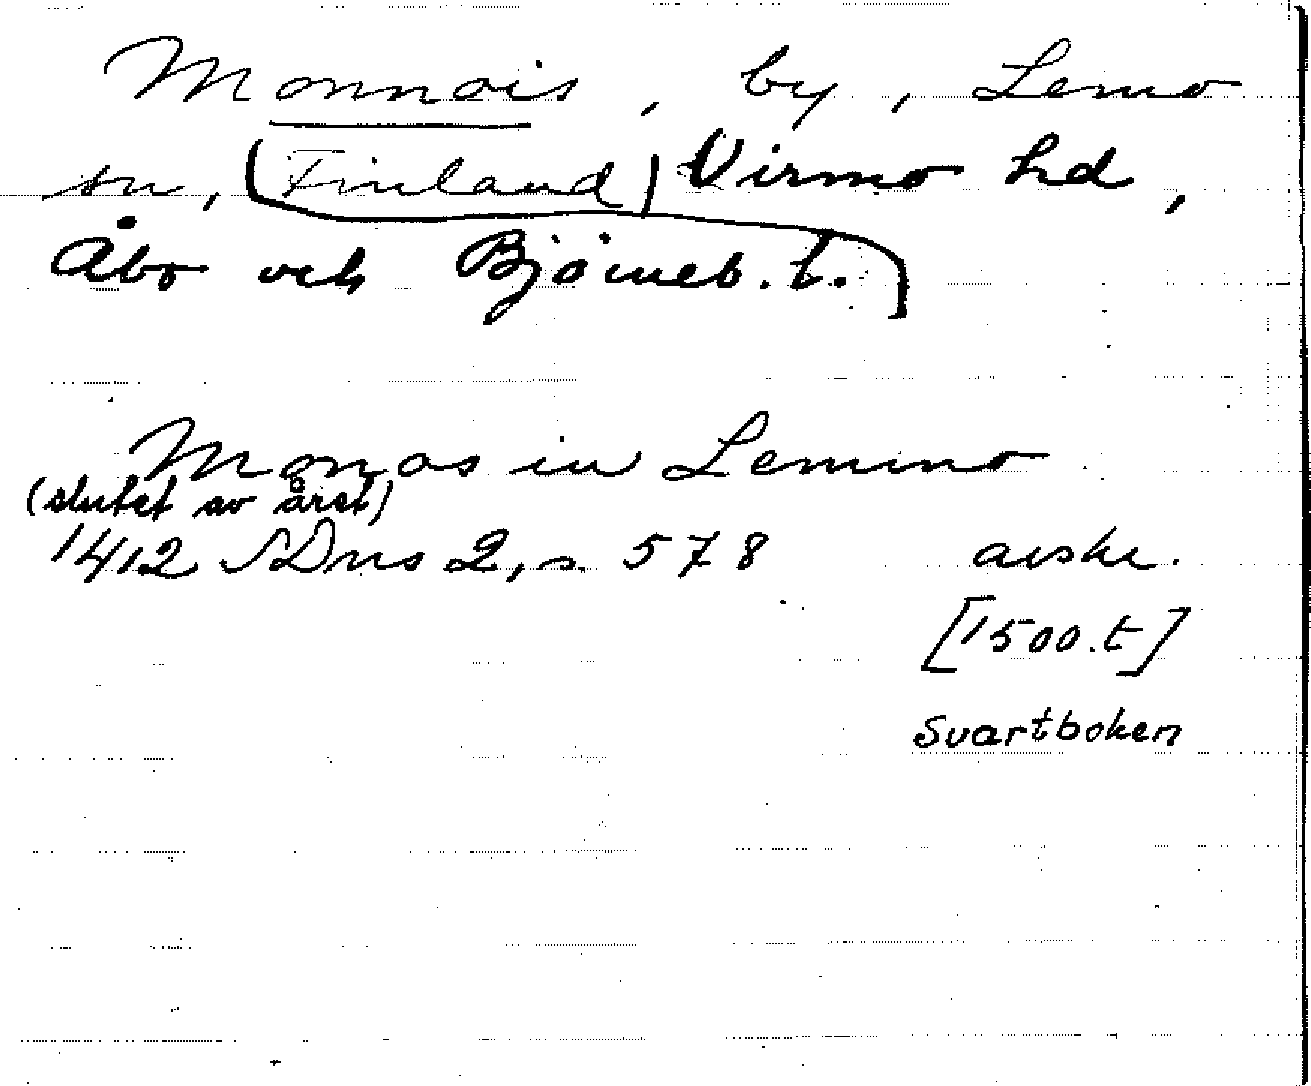 Monnois, by, Lemo
sn, (Finland) Virmo hd,
Åbo och Björneb. l.
Monos in Lemmo
(slutet av året)
1412 SDns 2, s. 578 avskr.
[1500.t]
Svartboken